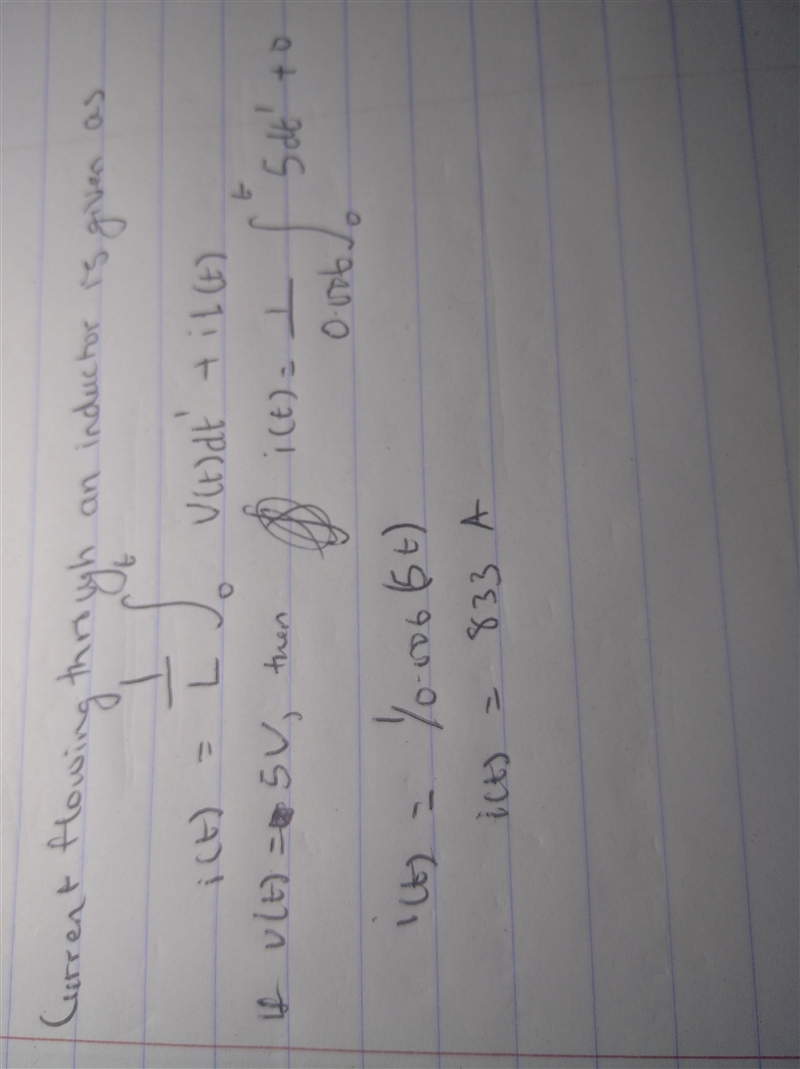 Current flowing through an inductor is given as
i(t) = 1/L ∫₀ᵗ V(t)dt' + iL(t)
If v(t) = 5V, then i(t) = 1/0.006 ∫₀ᵗ 5dt' + 0
i(t) = 1/0.006 (5t)
i(t) = 833 A